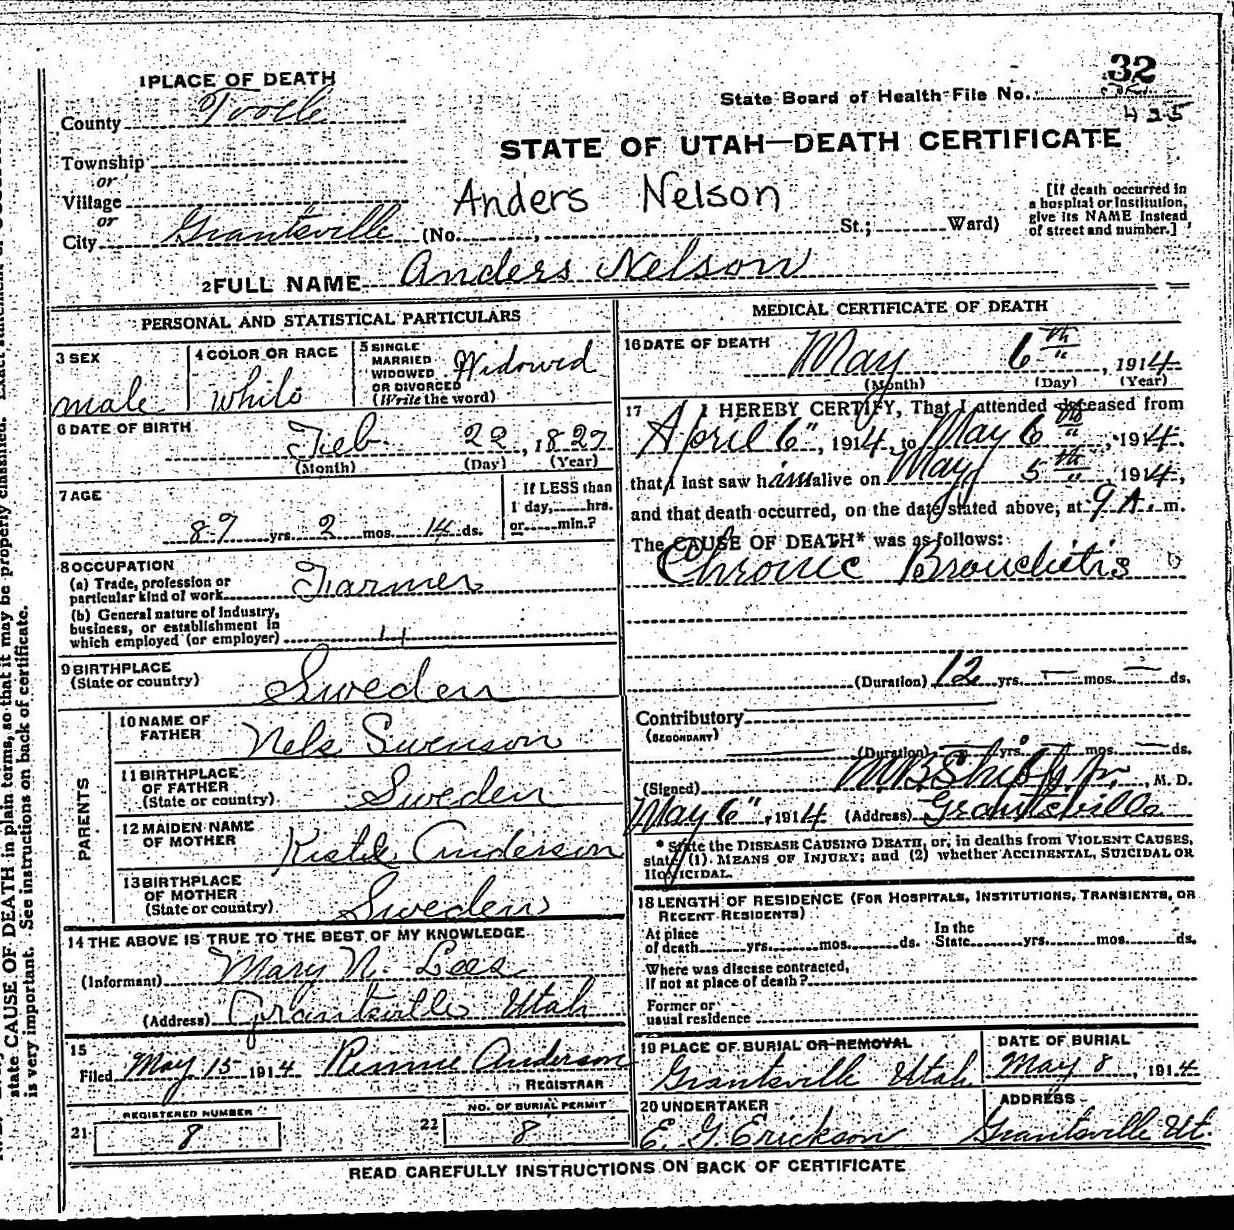 32
1 PLACE OF DEATH
State Board of Health-File No.
425
County Tooele
STATE OF UTAH—DEATH CERTIFICATE
Township
or
Village
Anders Nelson
[If death occurred in a hospital or institution, give its NAME instead of street and number.]
or
City Grantsville (No. , St.; Ward)
2 FULL NAME Anders Nelson
PERSONAL AND STATISTICAL PARTICULARS
3 SEX male
4 COLOR OR RACE white
5 SINGLE MARRIED WIDOWED OR DIVORCED (Write the word) Widowed
6 DATE OF BIRTH Feb. 22, 1827
(Month) (Day) (Year)
7 AGE
If LESS than 1 day, hrs. or min.?
87 yrs. 2 mos. 14 ds.
8 OCCUPATION
(a) Trade, profession or particular kind of work Farmer
(b) General nature of industry, business, or establishment in which employed (or employer) "
9 BIRTHPLACE
(State or country) Sweden
PARENTS
10 NAME OF FATHER Nels Swenson
11 BIRTHPLACE OF FATHER (State or country) Sweden
12 MAIDEN NAME OF MOTHER Anderson
13 BIRTHPLACE OF MOTHER (State or country) Sweden
14 THE ABOVE IS TRUE TO THE BEST OF MY KNOWLEDGE
(Informant) Mary N. Lees
(Address) Grantsville Utah
15
Filed May 15 1914 Anderson
REGISTRAR
REGISTERED NUMBER
21 8
NO. OF BURIAL PERMIT
22 8
MEDICAL CERTIFICATE OF DEATH
16 DATE OF DEATH May 6th, 1914
(Month) (Day) (Year)
17 I HEREBY CERTIFY, That I attended deceased from
April 6", 1914, to May 6th, 1914,
that I last saw him alive on May 5th 1914,
and that death occurred, on the date stated above, at 9 A. m.
The CAUSE OF DEATH* was as follows:
Chronic Bronchitis
(Duration) 12 yrs. — mos. — ds.
Contributory
(SECONDARY)
(Duration) — yrs. — mos. — ds.
(Signed) M. D.
May 6", 1914 (Address) Grantsville
* State the DISEASE CAUSING DEATH, or, in deaths from VIOLENT CAUSES,
state (1) MEANS OF INJURY; and (2) whether ACCIDENTAL, SUICIDAL OR
HOMICIDAL.
18 LENGTH OF RESIDENCE (FOR HOSPITALS, INSTITUTIONS, TRANSIENTS, OR
RECENT RESIDENTS)
At place of death yrs. mos. ds. In the State yrs. mos. ds.
Where was disease contracted,
if not at place of death?
Former or
usual residence
19 PLACE OF BURIAL OR REMOVAL
Grantsville Utah
DATE OF BURIAL
May 8, 1914
20 UNDERTAKER
E. G. Erickson
ADDRESS
Grantsville Ut
READ CAREFULLY INSTRUCTIONS ON BACK OF CERTIFICATE
state CAUSE OF DEATH in plain terms, so that it may be properly classified.
is very important. See instructions on back of certificate.